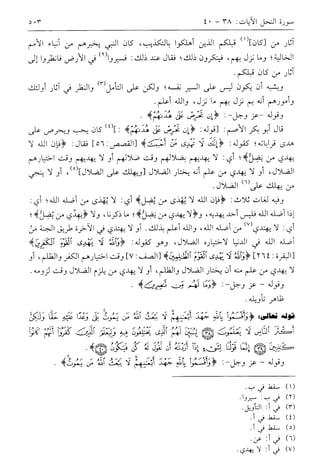 سورة النحل الآيات: ٣٨ - ٤٠ ٥٠٣
آثار من [كان](١) قبلكم الذين أهلكوا بالتكذيب، كان النبي يخبرهم من أنباء الأمم
الخالية؛ وما نزل بهم، فينكرون ذلك؛ فقال عند ذلك: فسيروا(٢) في الأرض فانظروا إلى
آثار من كان قبلكم.
ويشبه أن يكون ليس على السير نفسه؛ ولكن على التأمل(٣) والنظر في آثار أولئك
وأمورهم أنه بم نزل بهم ما نزل، والله أعلم.
وقوله - عز وجل-: ﴿إِن تَحْرِصْ عَلَىٰ هُدَىٰهُمْ﴾.
قال أبو بكر الأصم: [قوله: ﴿إِن تَحْرِصْ عَلَىٰ هُدَىٰهُمْ﴾:](٤) كان يحب ويحرص على
هدى قراباته؛ كقوله: ﴿إِنَّكَ لَا تَهْدِى مَنْ أَحْبَبْتَ﴾ [القصص: ٥٦] فقال: ﴿فإن الله لا
يهدي من يُضِلُّ﴾؛ أي: لا يهديهم بضلالهم وقت ضلالهم أو لا يهديهم وقت اختيارهم
الضلال، أو لا يهدي من علم أنه يختار الضلال [ويهلك على الضلال](٥)، أو لا ينجي
من يهلك على(٦) الضلال.
وفيه لغات ثلاث: ﴿فإن الله لا يُهدَى من يُضِلُّ﴾ أي: لا يُهدَى من أضله الله؛ أي:
إذا أضله الله فليس أحد يهديه، و﴿لا يهدي من يضل﴾؛ ما ذكرنا، ولا ﴿يهدي من يضل﴾؛
أي: لا يهتدي(٧) من أضله الله، والله أعلم بذلك. أو لا يهدي في الآخرة طريق الجنة مَنْ
أضله الله في الدنيا لاختياره الضلال، وهو كقوله: ﴿وَاللَّهُ لَا يَهْدِى الْقَوْمَ الْكَافِرِينَ﴾
[البقرة: ٢٦٤] ﴿وَاللَّهُ لَا يَهْدِى الْقَوْمَ الظَّالِمِينَ﴾ [الصف: ٧] وقت اختيارهم الكفر والظلم، أو
لا يهدي من علم منه أن يختار الضلال والظلم، أو لا يهدي من يلزم الضلال وقت لزومه.
وقوله - عز وجل-: ﴿وَمَا لَهُم مِّن نَّاصِرِينَ﴾.
ظاهر تأويله.
قوله تعالى: ﴿وَأَقْسَمُوا بِاللَّهِ جَهْدَ أَيْمَانِهِمْ لَا يَبْعَثُ اللَّهُ مَن يَمُوتُ بَلَىٰ وَعْدًا عَلَيْهِ حَقًّا وَلَٰكِنَّ
أَكْثَرَ النَّاسِ لَا يَعْلَمُونَ ٣٨ لِيُبَيِّنَ لَهُمُ الَّذِى يَخْتَلِفُونَ فِيهِ وَلِيَعْلَمَ الَّذِينَ كَفَرُوا أَنَّهُمْ كَانُوا
كَاذِبِينَ ٣٩ إِنَّمَا قَوْلُنَا لِشَىْءٍ إِذَا أَرَدْنَاهُ أَن نَّقُولَ لَهُ كُن فَيَكُونُ ٤٠﴾.
وقوله - عز وجل-: ﴿وَأَقْسَمُوا بِاللَّهِ جَهْدَ أَيْمَانِهِمْ لَا يَبْعَثُ اللَّهُ مَن يَمُوتُ﴾.
(١) سقط في ب.
(٢) في ب: سيروا.
(٣) في أ: التأويل.
(٤) سقط في أ.
(٥) سقط في أ.
(٦) في أ: عن.
(٧) في أ: لا يهدي.